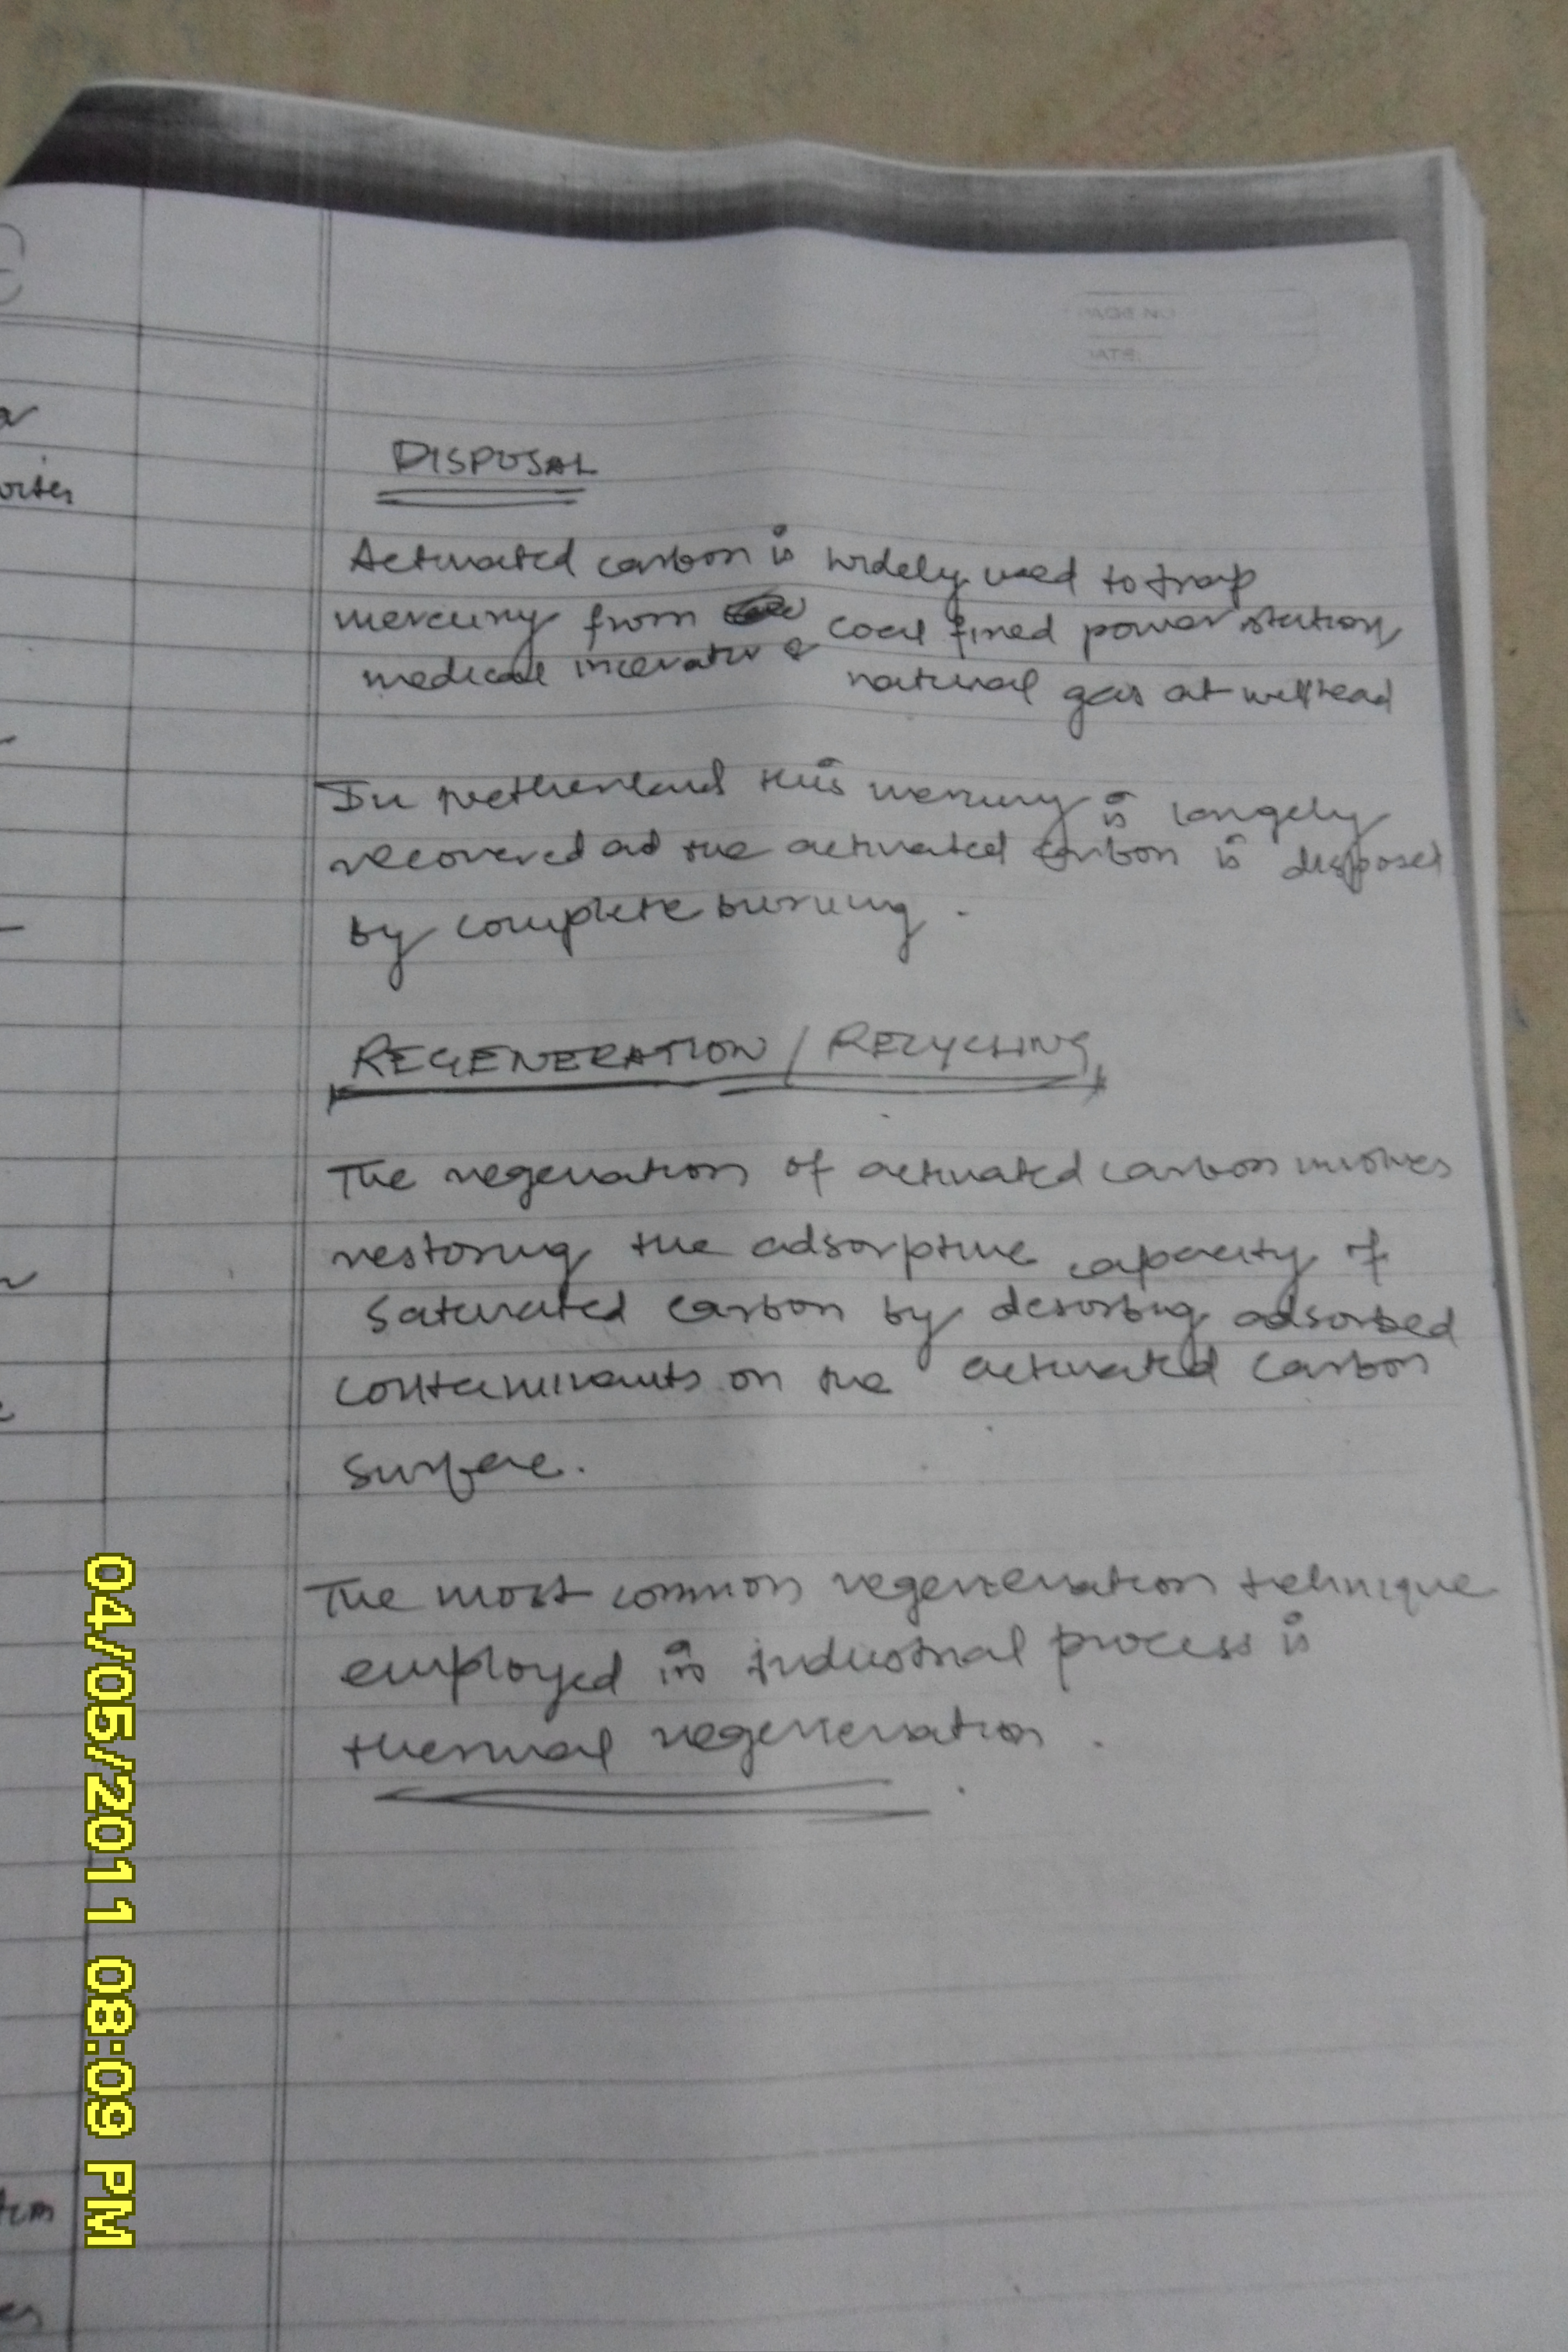 DISPOSAL
Activated carbon is widely used to trap
mercury from coal fired power station,
medical incerator & natural gas at wellhead
In Netherland this mercury is largely
recovered ad the activated carbon is disposed
by complete burning.
REGENERATION / RECYCLING
The regenation of activated carbon involves
restoring the adsorptive capacity of
saturated carbon by desorbig adsorbed
contaminants on the activated carbon
surface.
The most common regeneration technique
employed in industrial process is
thermal regeneration.
04/05/2011 08:09 PM